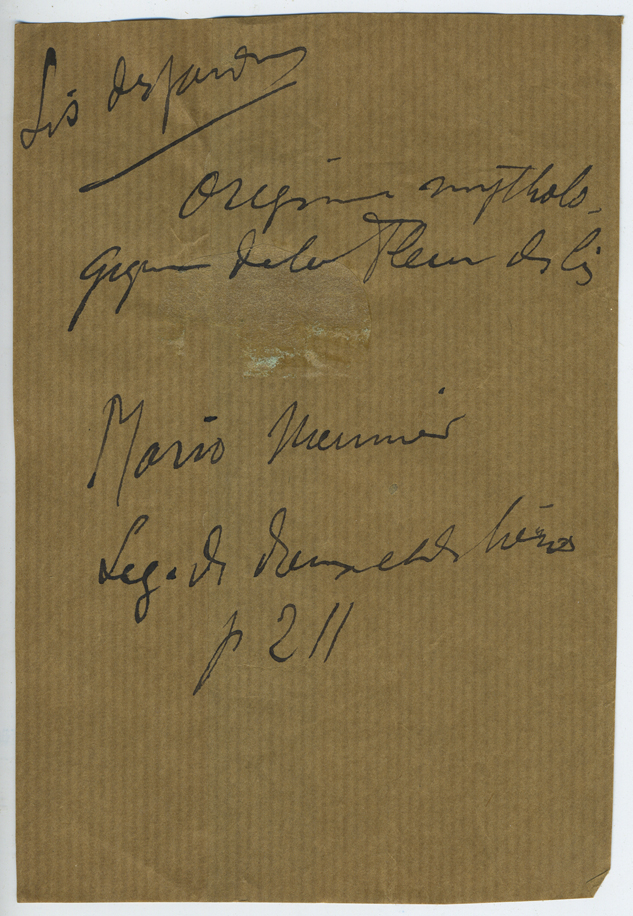 Lis des jardins
Origine mytholo-
gique de la Fleur de lis
Mario Meunier
Leg. des dieux et des héros
p 211